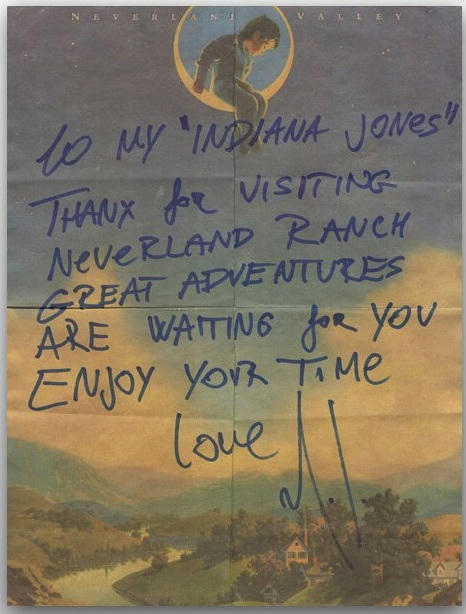 NEVERLAND VALLEY
to MY "INDIANA JONES"
THANX for VISITING
NEVERLAND RANCH
GREAT ADVENTURES
ARE WAITING for YOU
ENJOY YOUR TIME
Love